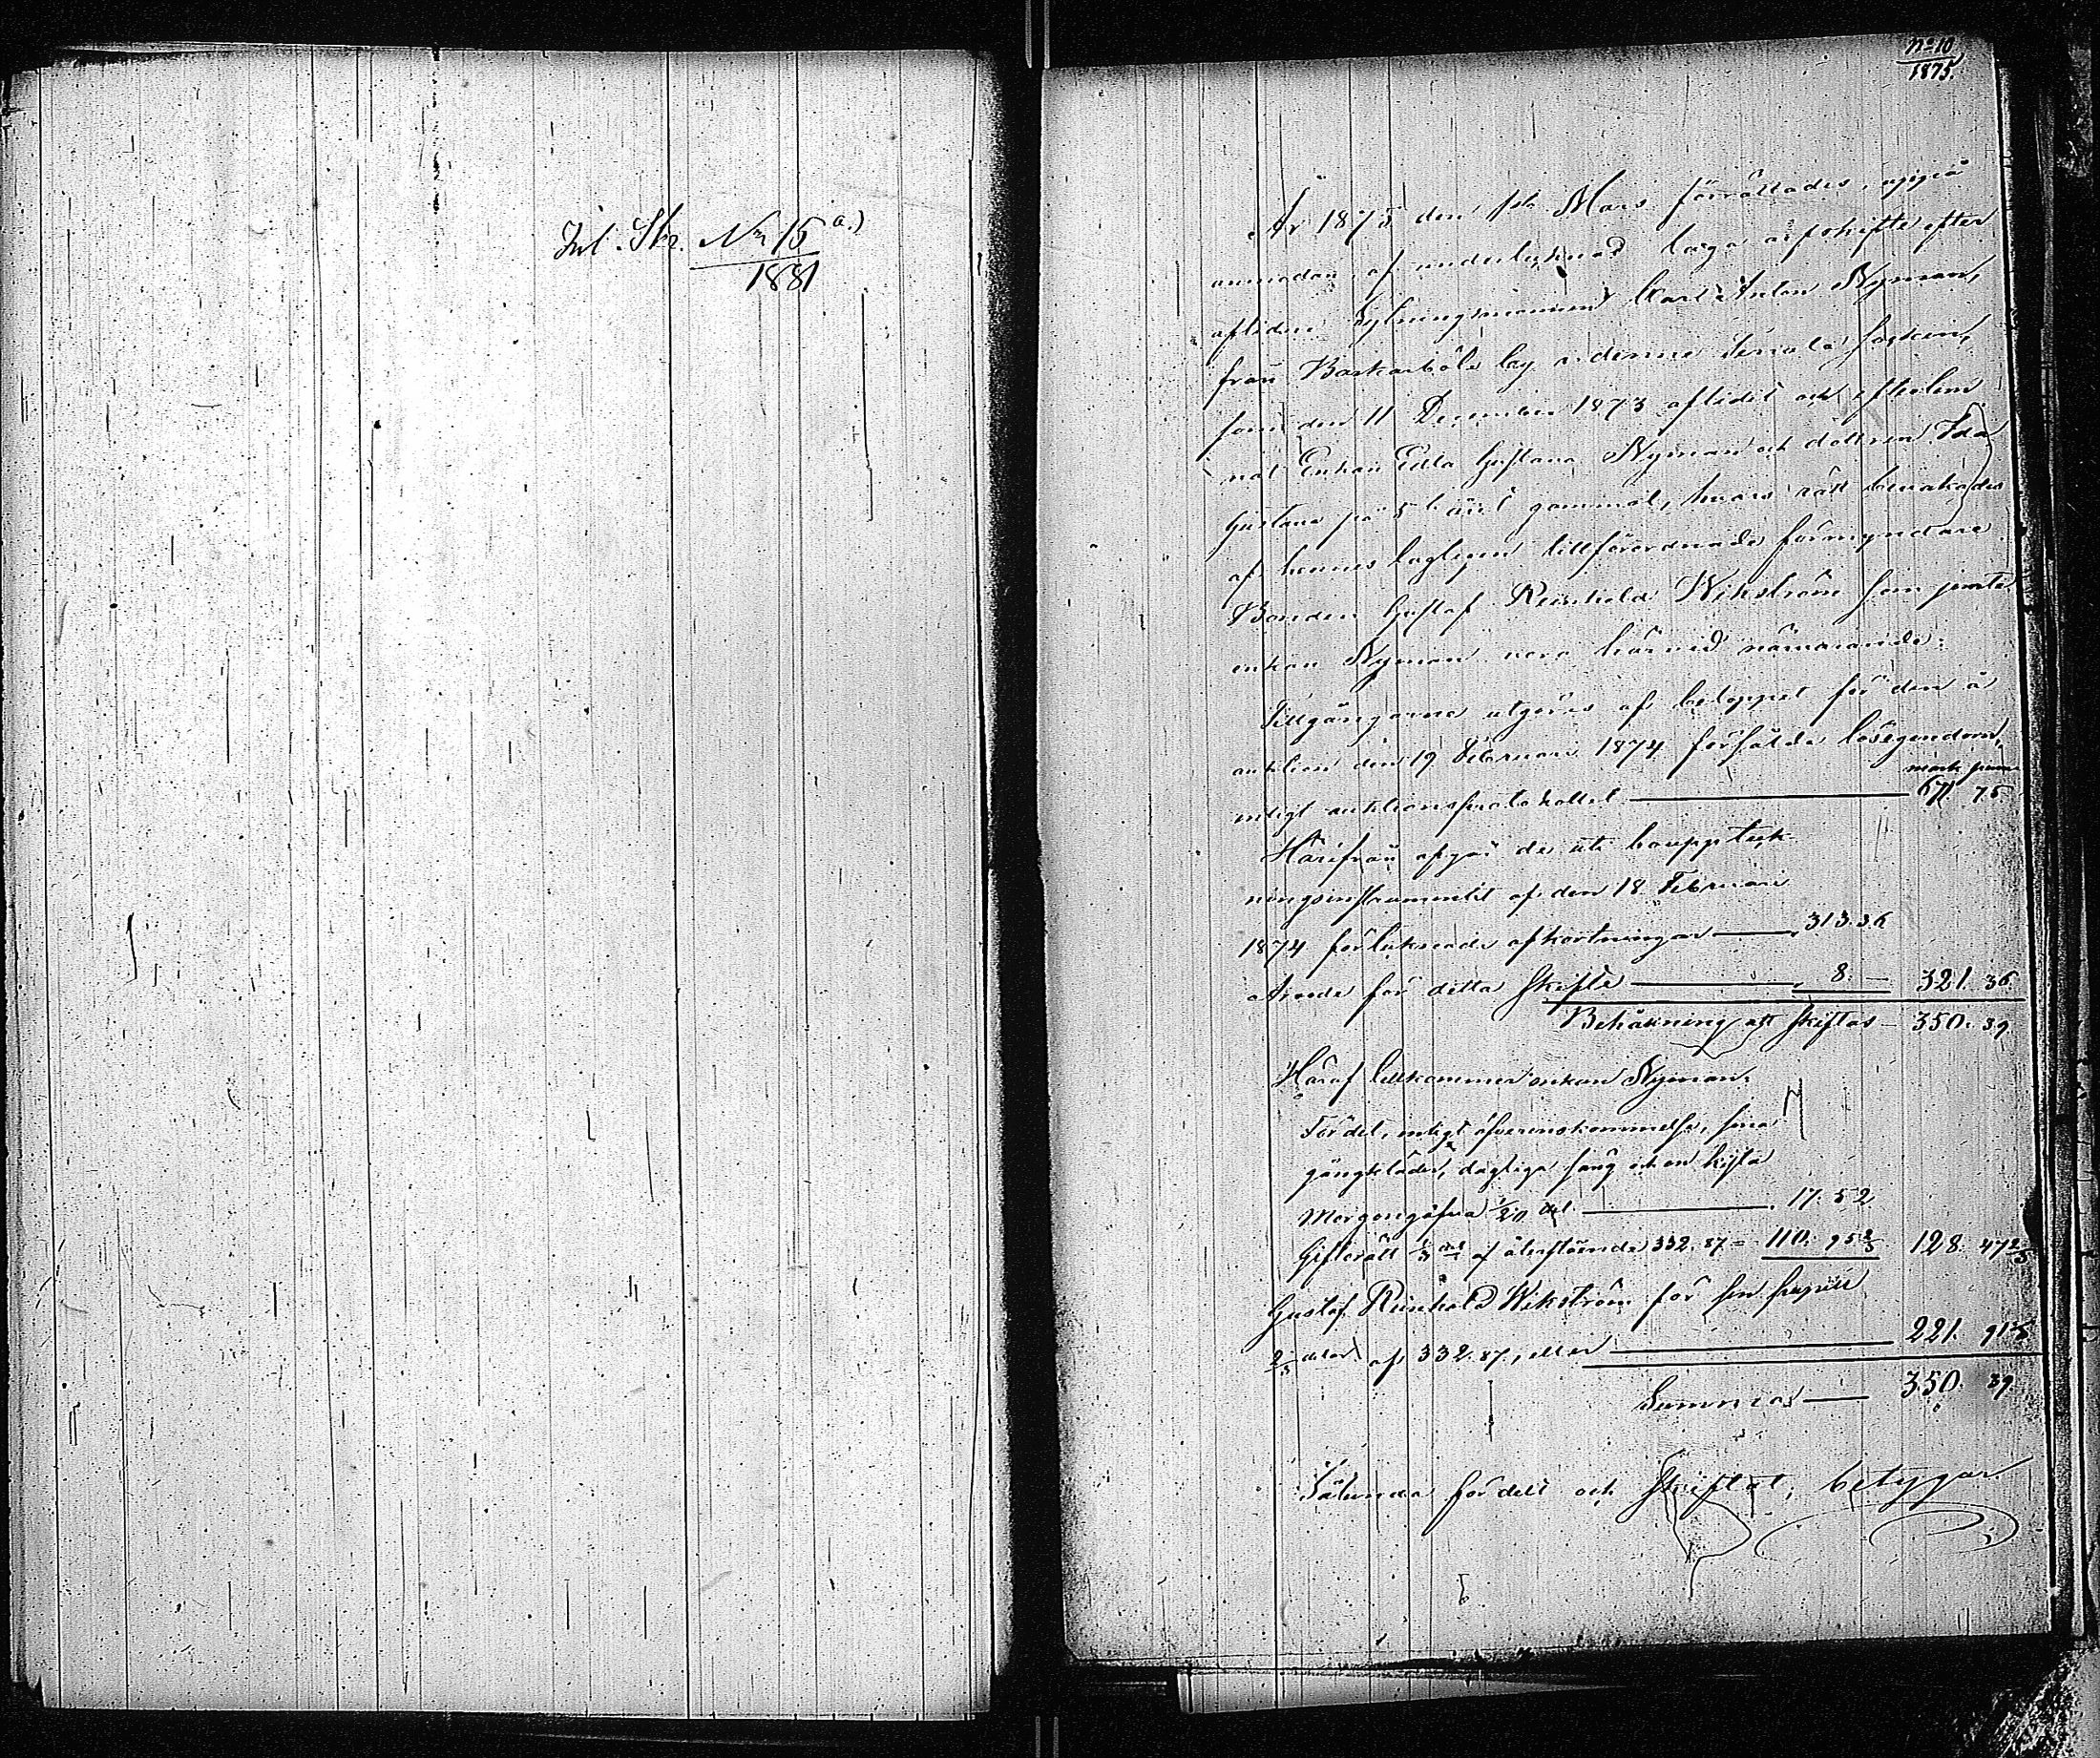 Inl. Skr. No 15 a.)
1881
No 10
1875.
År 1875 den 1sta Mars förrättades, uppå
anmodan, af undertecknad laga arfskifte efter
aflidne Sytningsmannen Karl Anton Nyman,
från Backarböle by i denne Tenala socken,
som den 11 December 1873 aflidit och efterlem
nat Enkan Edla Gustava Nyman och dottren Ida
Gustava på 5te året gammal, hvars rätt bevakades
af hennes lagligen tillförordnade förmyndare
Bonden Gustaf Reinhold Wikström som jemte
enkan Nyman voro härvid närvarande:
Tillgångarne utgöras af beloppet för den å
auktion den 19 Februari 1874 försålda lösegendom,
mark penni
enligt auktionsprotokollet 671. 75
Härifrån afgår de uti bouppteck-
ningsinstrumentet af den 18 Februari
1874 förtecknade afkortningar 313.36
Arvode för detta skifte 8. — 321. 36.
Behållning att skiftas — 350. 39.
Häraf tillkommer enkan Nyman:
Fördel, enligt öfverenskommelse, sina
gångkläder, dagliga säng och en kista
Morgongåfva 1/20 del 17. 52
Giftorätt 1/3 del af återstående 332. 87 = 110. 95 2/3 128. 47 2/3
Gustaf Reinhold Wikström för sin pupill
2/3 delar af 332. 87., eller 221. 91 1/3
Summa 350. 39
Sålunda fördelt och skiftat, betygar